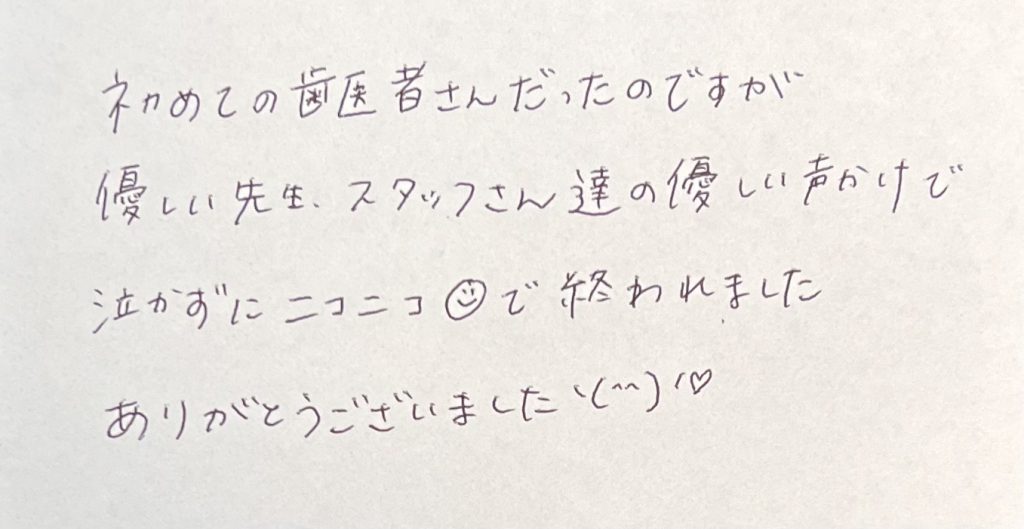 初めての歯医者さんだったのですが
優しい先生、スタッフさん達の優しい声かけで
泣かずにニコニコ☺で終われました
ありがとうございました ヽ(^^)ノ♡